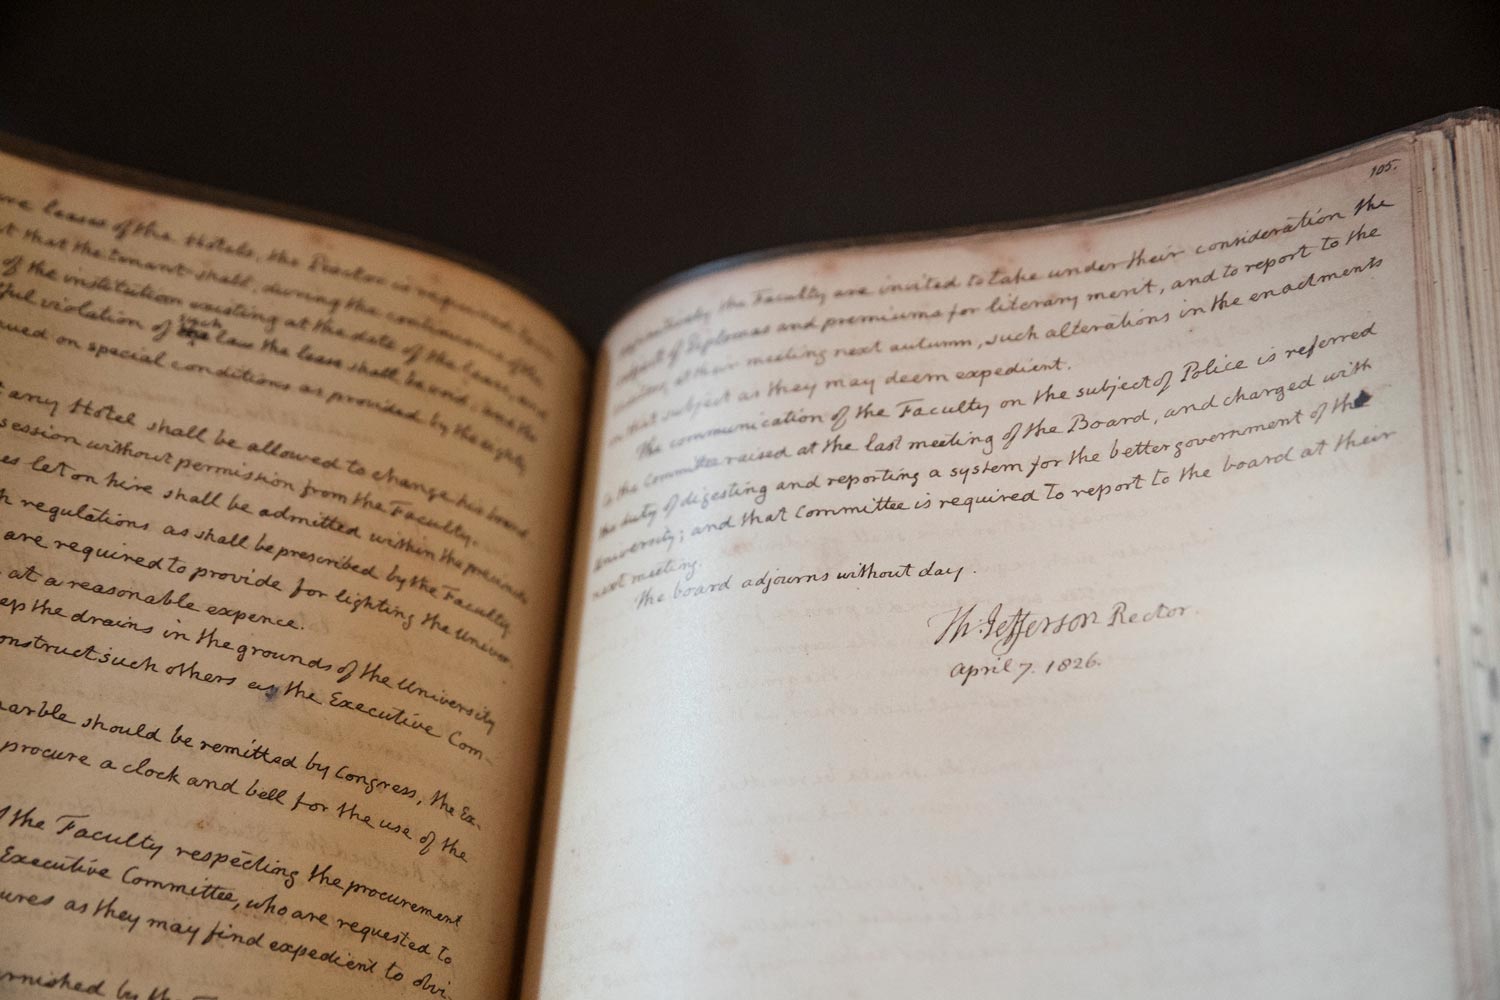 leases of the Hotels, the Proctor is required to
that the tenant shall, during the continuance of the
of the institution existing at the date of the lease, and
violation of such law the lease shall be void, and the
on special conditions as provided by the eighth
any Hotel shall be allowed to change his board
without permission from the Faculty.
let on hire shall be admitted within the precincts
regulations as shall be prescribed by the Faculty.
are required to provide for lighting the Univer-
at a reasonable expence.
the drains in the grounds of the University
construct such others as the Executive Com-
marble should be remitted by Congress, the Ex-
procure a clock and bell for the use of the
the Faculty respecting the procurement
Executive Committee, who are requested to
as they may find expedient to obvi-
furnished by the
105.
the Faculty are invited to take under their consideration the
subject of Diplomas and premiums for literary merit, and to report to the
at their meeting next autumn, such alterations in the enactments
on that subject as they may deem expedient.
The communication of the Faculty on the subject of Police is referred
to the Committee raised at the last meeting of the Board, and charged with
the duty of digesting and reporting a system for the better government of the
University; and that Committee is required to report to the board at their
next meeting.
The board adjourns without day.
Th: Jefferson Rector.
April 7. 1826.